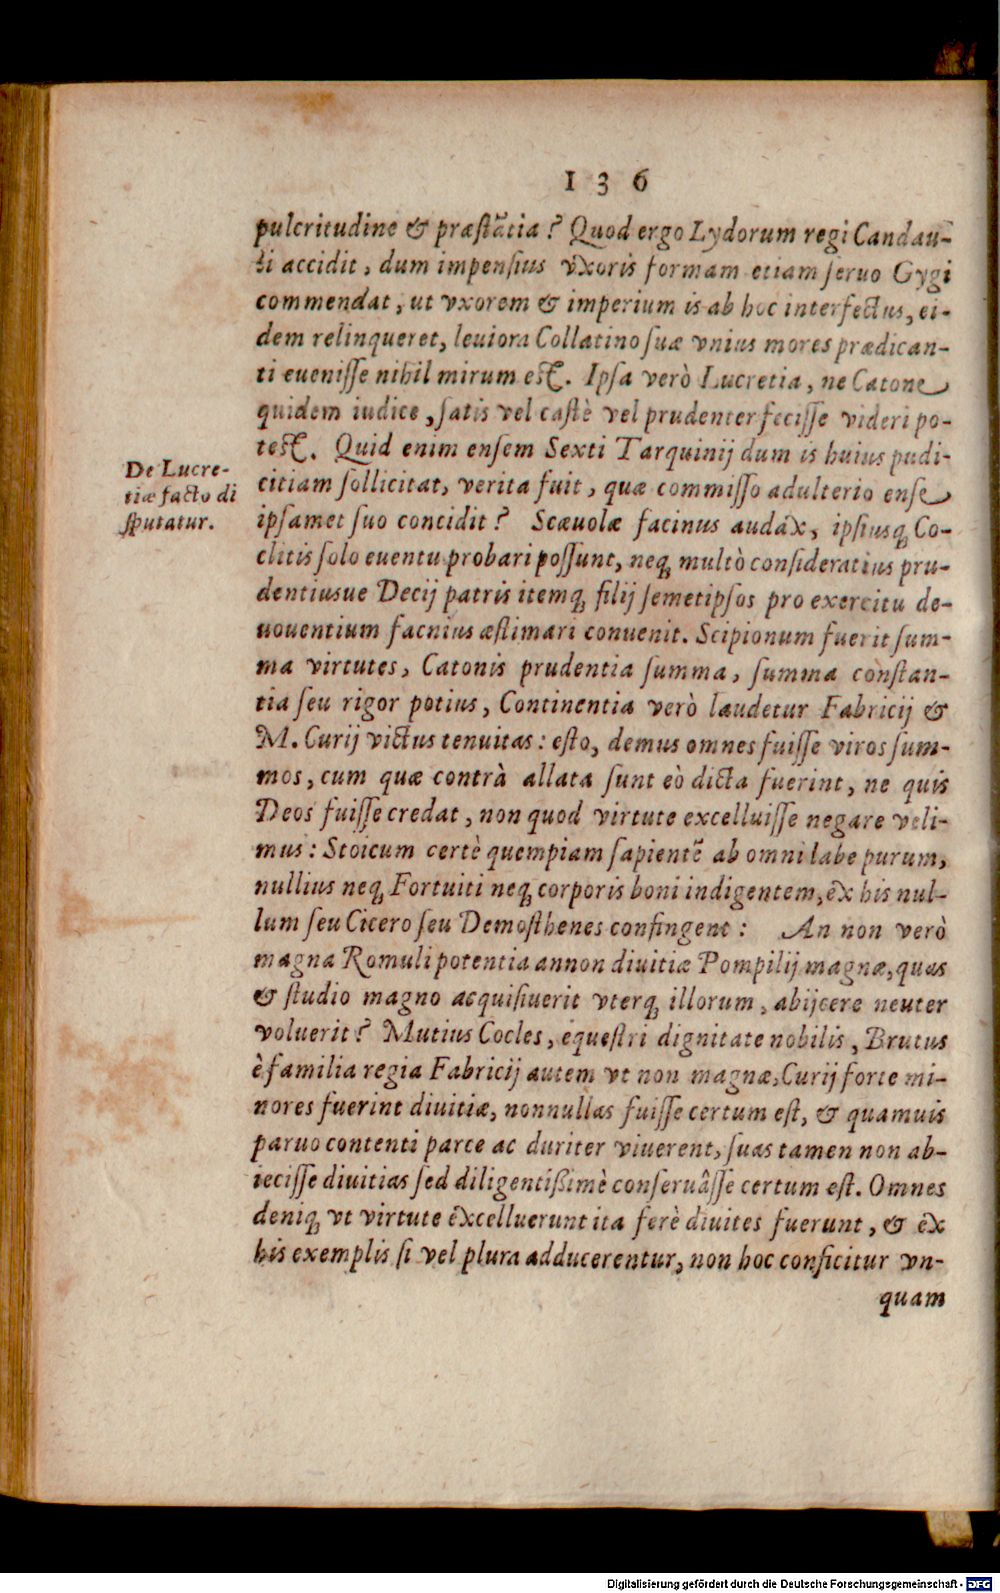 136
pulcritudine & præstãtia? Quod ergo Lydorum regi Candau-
li accidit, dum impensius vxoris formam etiam seruo Gygi
commendat, ut vxorem & imperium is ab hoc interfectus, ei-
dem relinqueret, leuiora Collatino suæ vnius mores prædican-
ti euenisse nihil mirum est. Ipsa verò Lucretia, ne Catone
quidem iudice, satis vel castè vel prudenter fecisse videri po-
test. Quid enim ensem Sexti Tarquinij dum is huius pudi-
De Lucre-
tiæ facto di
sputatur.
citiam sollicitat, verita fuit, quæ commisso adulterio ense
ipsamet suo concidit? Scæuolæ facinus audax, ipsiusq; Co-
clitis solo euentu probari possunt, neq; multò consideratius pru-
dentiusue Decij patris itemq; filij semetipsos pro exercitu de-
uouentium facnius æstimari conuenit. Scipionum fuerit sum-
ma virtutes, Catonis prudentia summa, summa constan-
tia seu rigor potius, Continentia verò laudetur Fabricij &
M. Curij victus tenuitas: esto, demus omnes fuisse viros sum-
mos, cum quæ contrà allata sunt eò dicta fuerint, ne quis
Deos fuisse credat, non quod virtute excelluisse negare veli-
mus: Stoicum certè quempiam sapientẽ ab omni labe purum,
nullius neq; Fortuiti neq; corporis boni indigentem, ex his nul-
lum seu Cicero seu Demosthenes confingent: An non verò
magna Romuli potentia annon diuitiæ Pompilij magnæ, quas
& studio magno acquisiuerit vterq; illorum, abijcere neuter
voluerit? Mutius Cocles, equestri dignitate nobilis, Brutus
è familia regia Fabricij autem vt non magnæ, Curij forte mi-
nores fuerint diuitiæ, nonnullas fuisse certum est, & quamuis
paruo contenti parce ac duriter viuerent, suas tamen non ab-
iecisse diuitias sed diligentißimè conseruâsse certum est. Omnes
deniq; vt virtute excelluerunt ita ferè diuites fuerunt, & ex
his exemplis si vel plura adducerentur, non hoc conficitur vn-
quam
Digitalisierung gefördert durch die Deutsche Forschungsgemeinschaft - DFG